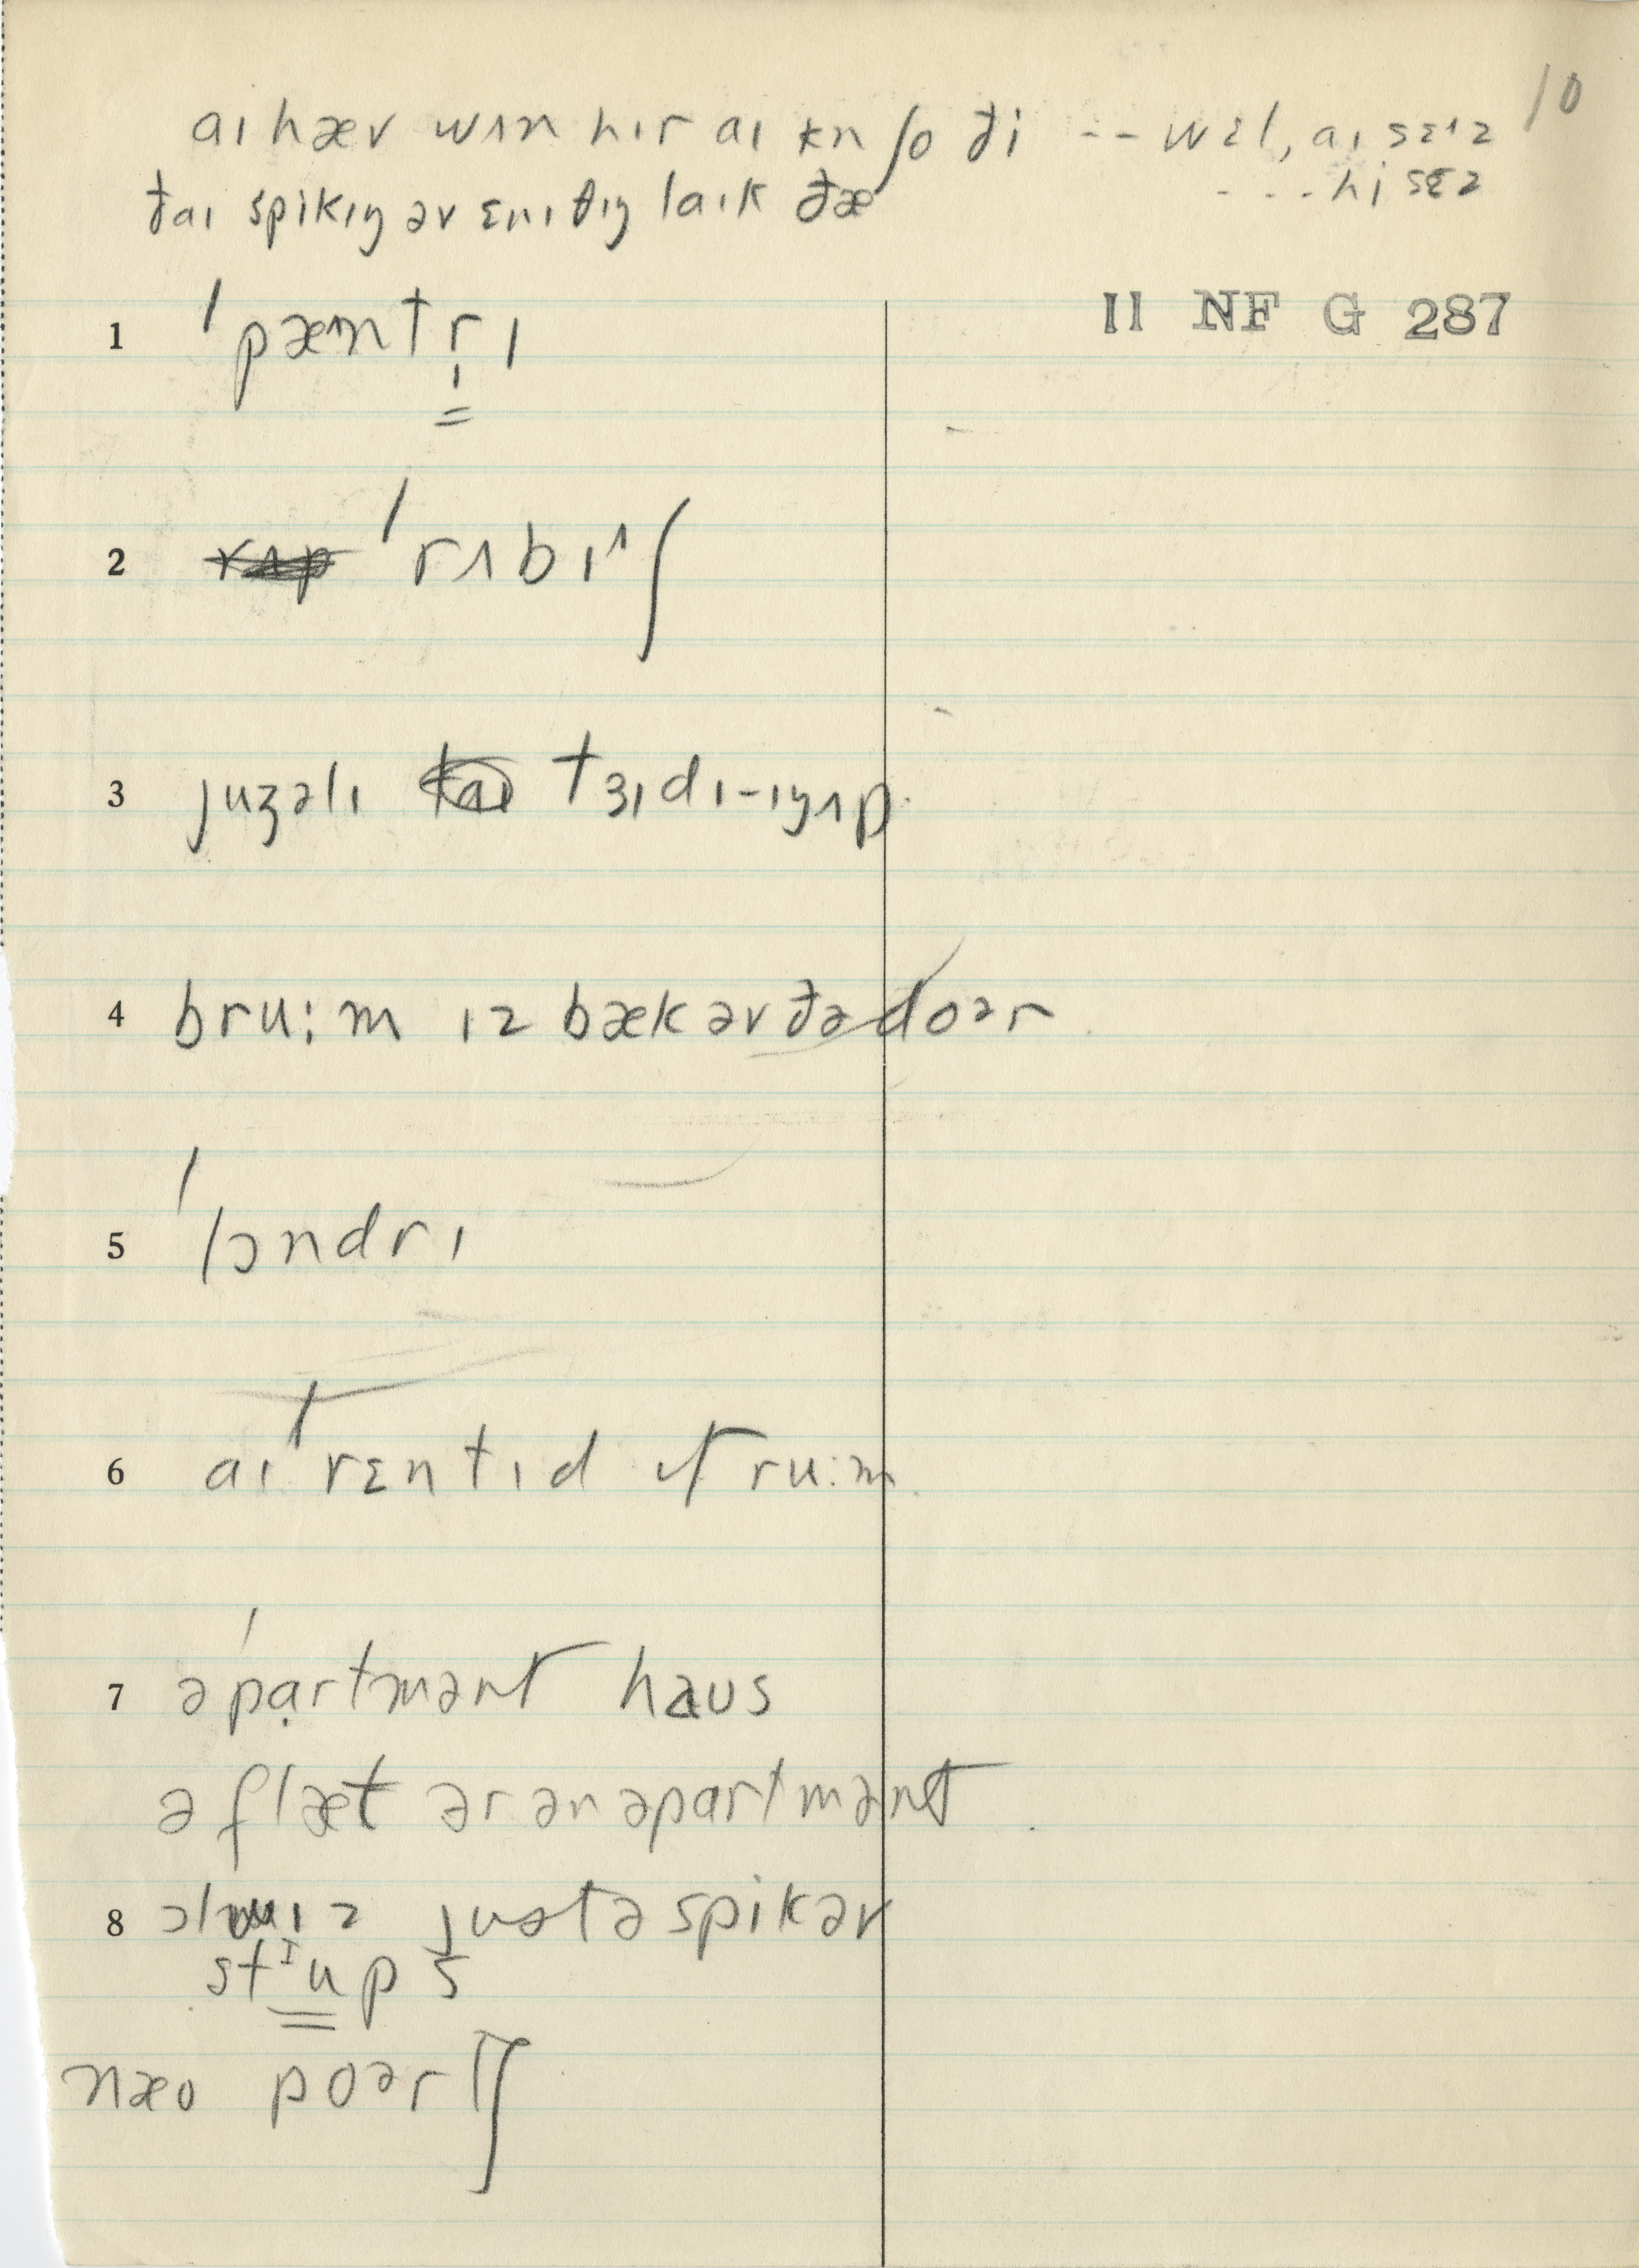 10
aɪ hæv wʌn hɪr aɪ kn ʃo ði -- wɛl, aɪ sɛɪz
ðaɪ spikɪŋ əv ɛnɪðɪŋ laɪk ðæ ---hi sɛz
II NF G 287
1 ˈpæntrɪ
2 ˈrʌbɪ^ʃ
3 juʒəlɪ tɜɪdɪ-ɪŋʌp.
4 bru:m ɪz bæk əv ðə doər
5 ˈlɔndrɪ
6 aɪ ˈrɛntɪd ru:m
7 əˈpạrtmənt haus
ə flæt ər ən əpartmənt.
8 justə spik əv
stᴵups
næo poərtʃ